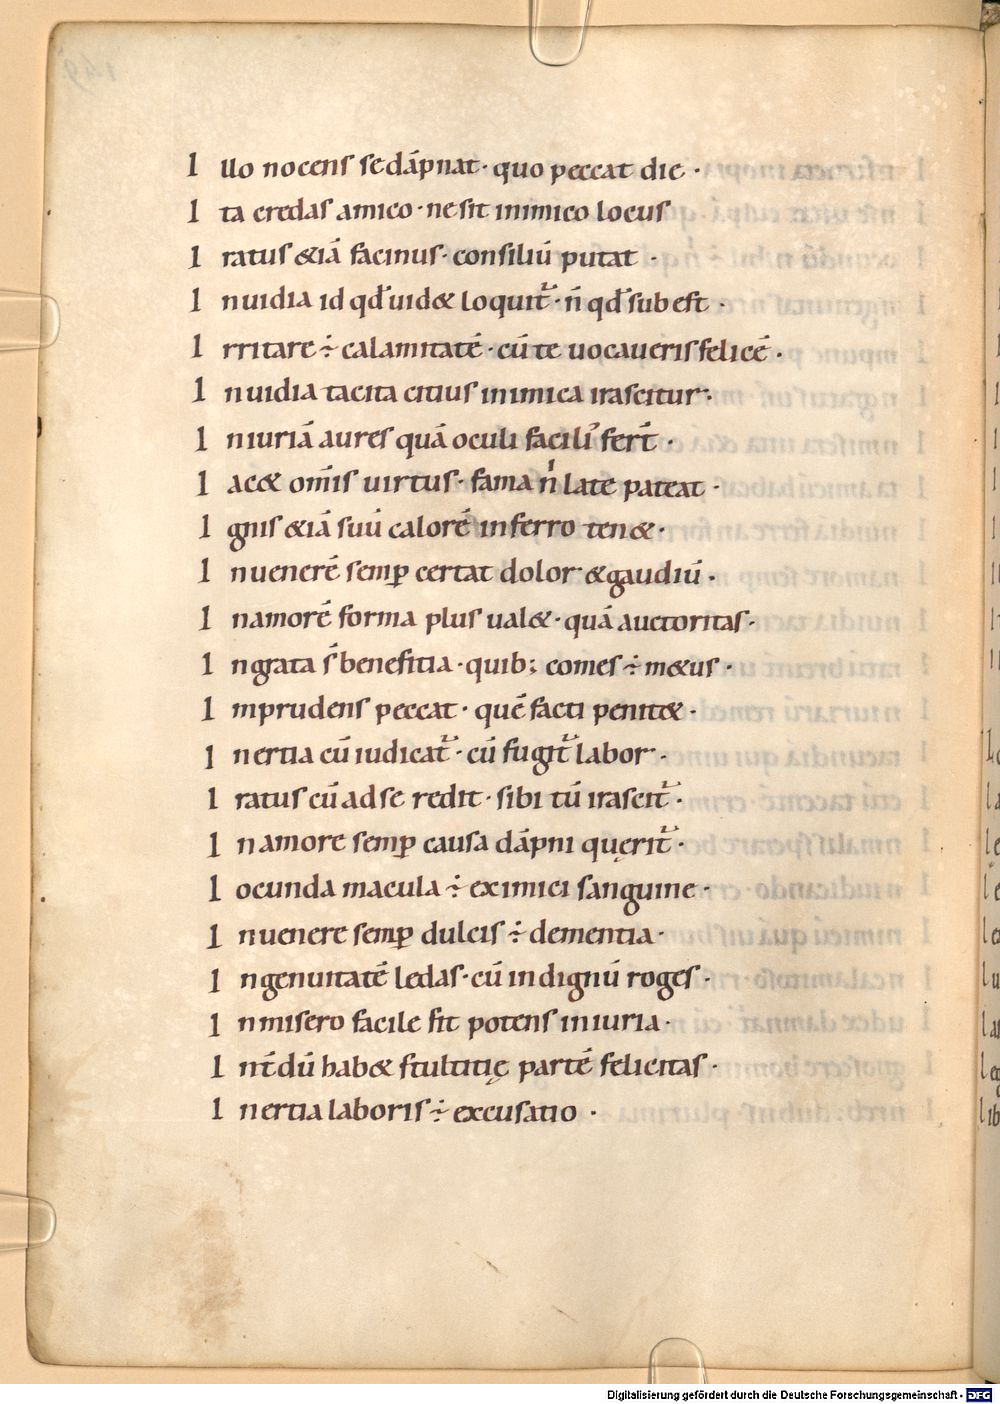 I llo nocens se dāpnat · quo peccat die ·
I ta credas amico · ne sit inimico locus
I ratus &iā facinus · consiliū putat ·
I nuidia id qđ uid& loquit̄ · n̄ qđ subest ·
I rritare ÷ calamitatē · cū te uocaueris felicē ·
I nuidia tacita citius inimica irascitur ·
I niuriā aures quā oculi facili᾽ fert̄ ·
I ac& om̄is uirtus · fama n͛ late pateat ·
I gnis &iā suū calorē in ferro ten& ·
I nuenerē semꝑ certat dolor &gaudiū ·
I namorē forma plus ual& · quā auctoritas ·
I ngrata s̄ benefitia · quib; comes ÷ m&us ·
I mprudens peccat · quē facti penit& ·
I nertia cū iudicat᷑ · cū fugit᷑ labor ·
I ratus cū ad se redit · sibi tū irascit᷑ ·
I n amore semꝑ causa dāpni quęrit᷑ ·
I ocunda macula ÷ ex imici sanguine ·
I nuenere semꝑ dulcis ÷ dementia ·
I ngenuitatē ledas · cū indignū roges ·
I nmisero facile fit potens iniuria ·
I nt̄dū hab& stultitię partē felicitas ·
I nertia laboris ÷ excusatio ·
Digitalisierung gefördert durch die Deutsche Forschungsgemeinschaft - DFG